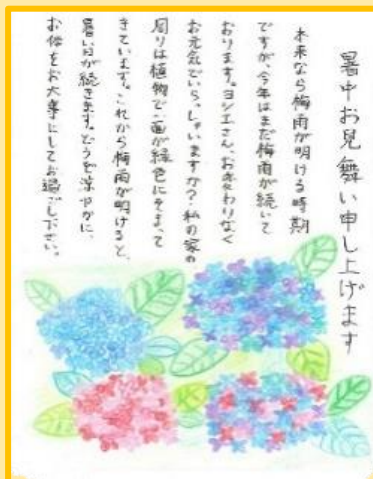 暑中お見舞い申し上げます
本来なら梅雨が明ける時期
ですが、今年はまだ梅雨が続いて
おります。ヨシエさん、お変わりなく
お元気でいらっしゃいますか?私の家の
周りは植物で一面が緑色にそまって
きています。これから梅雨が明けると、
暑い日が続きます。どうぞ涼やかに、
お体をお大事にしてお過ごし下さい。